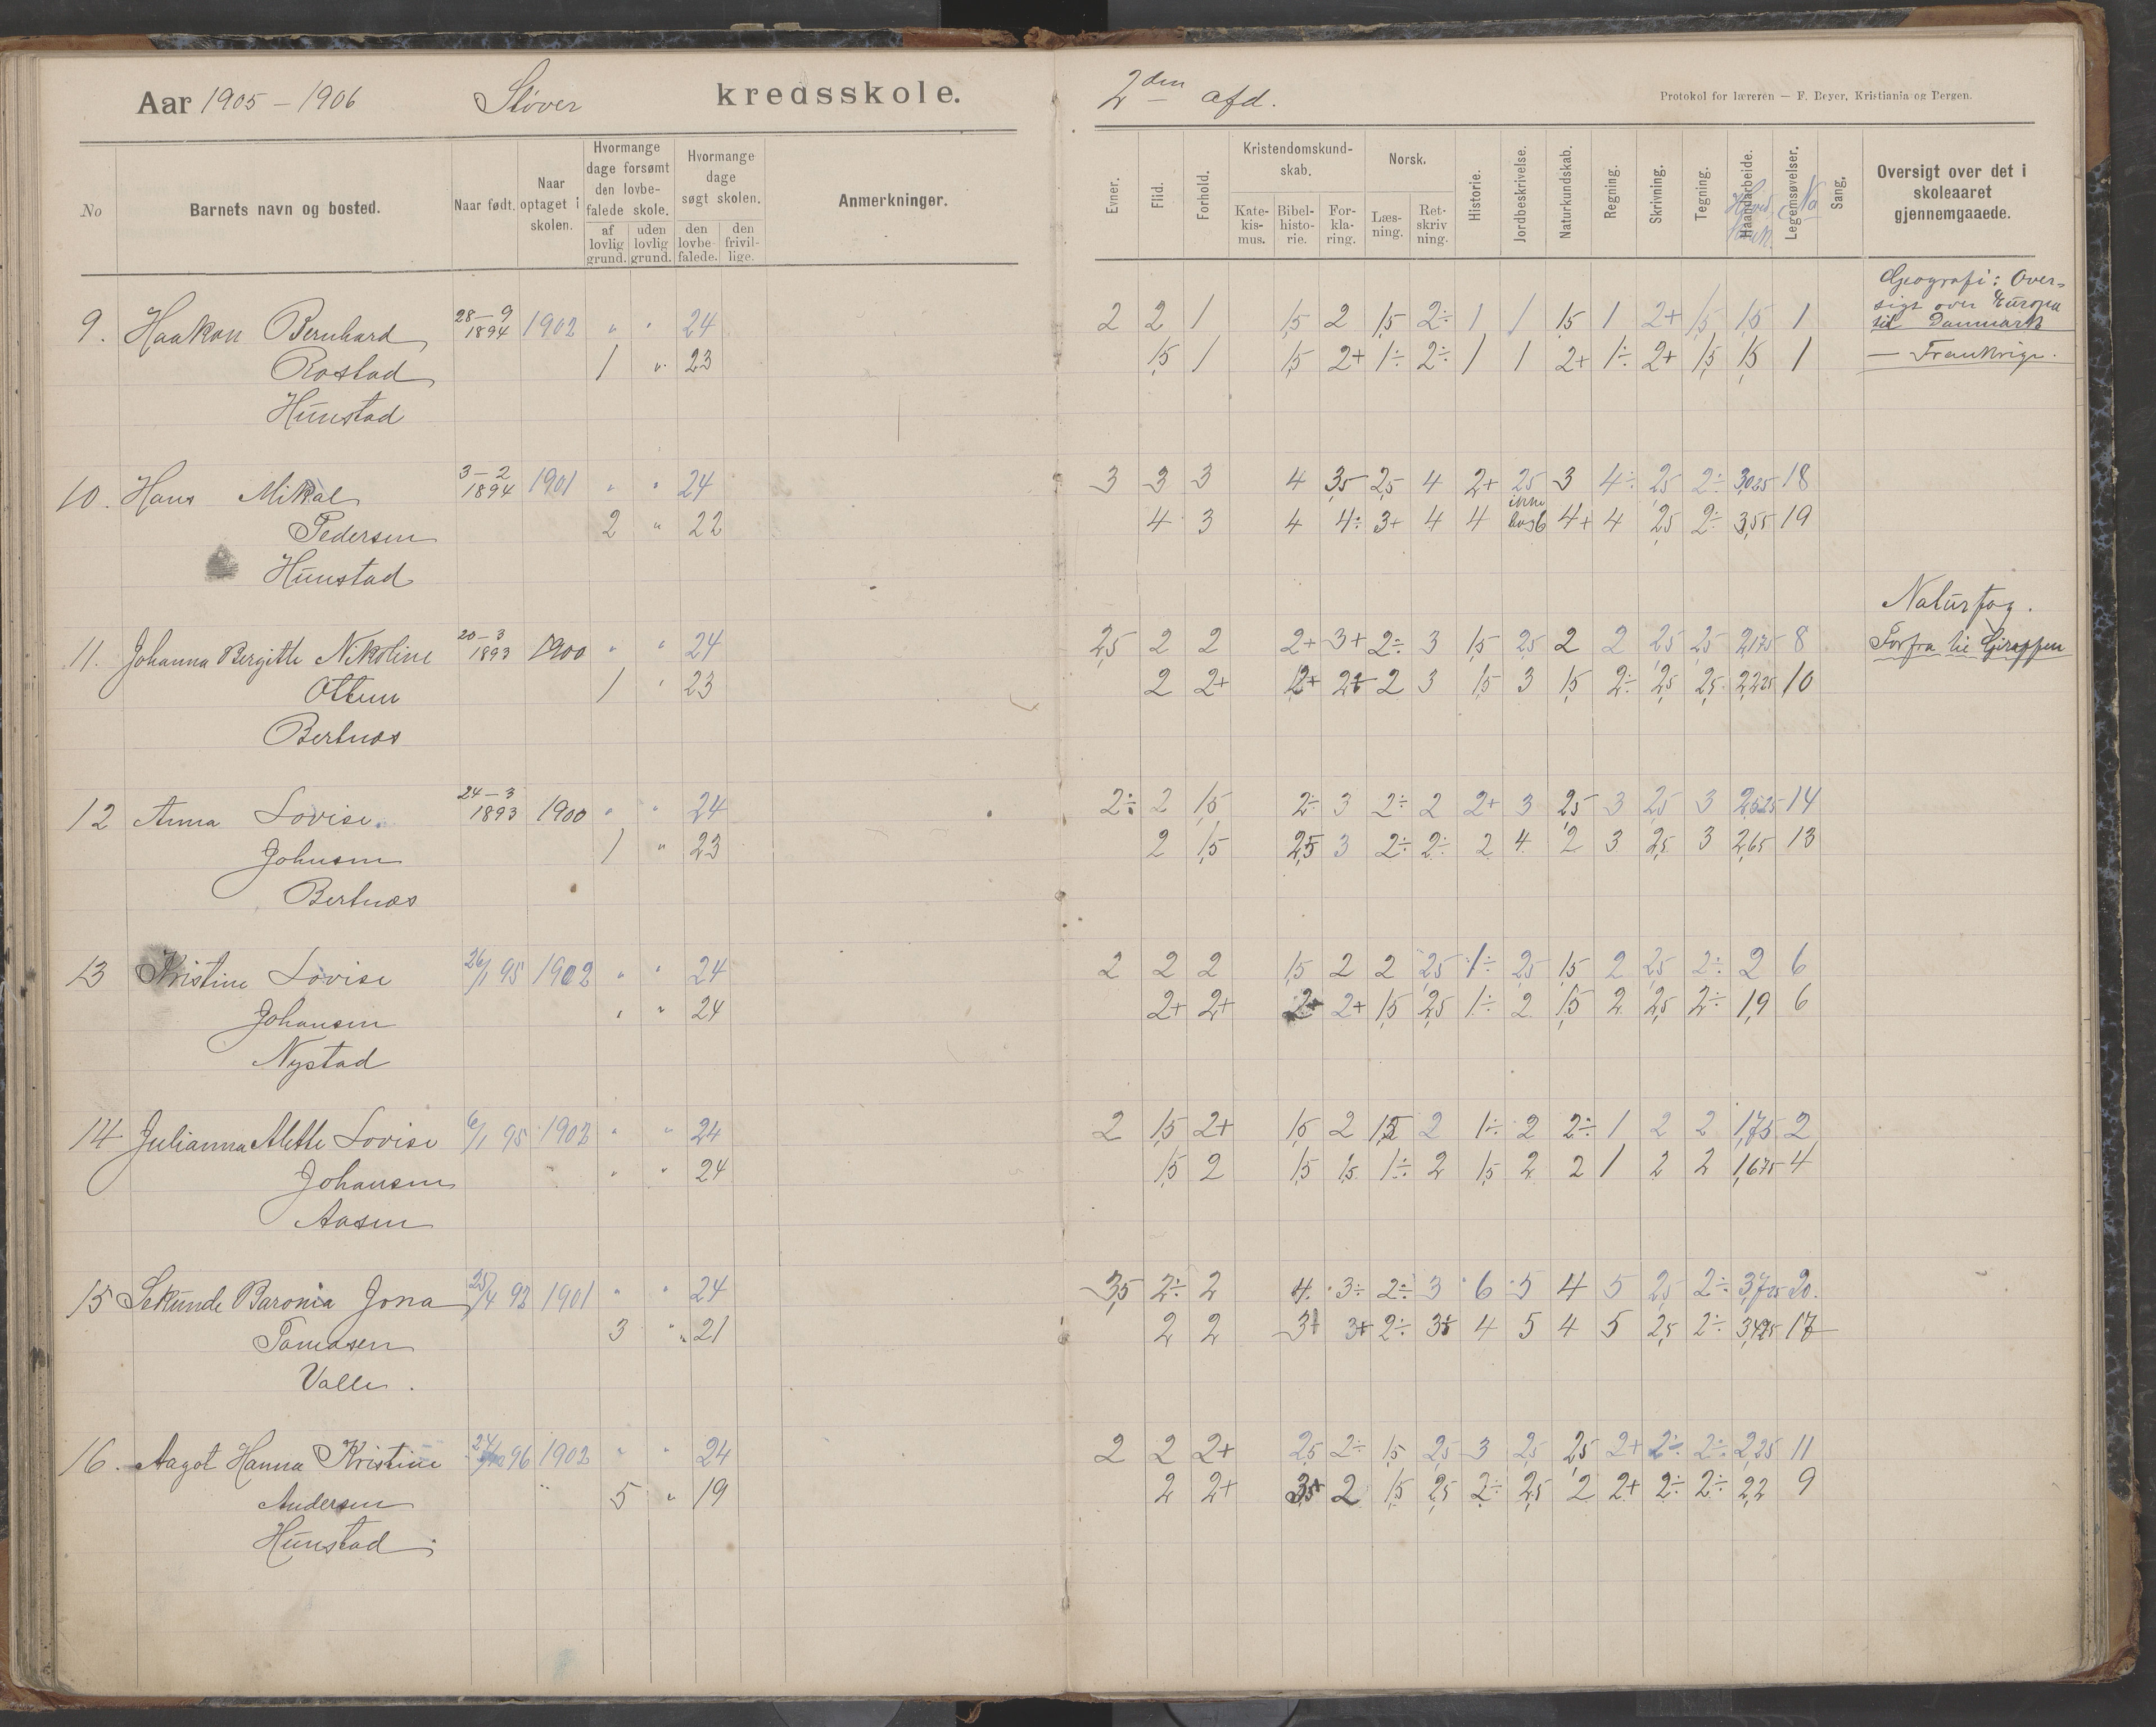 Aar 1905 - 1906 Støver kredsskole. 2den afd.
Protokol for læreren — F. Beyer, Kristiania og Bergen.
No Barnets navn og bosted. Naar født. Naar optaget i skolen. Hvormange dage forsømt den lovbefalede skole. af lovlig grund. uden lovlig grund. Hvormange dage søgt skolen. den lovbefalede. den frivillige. Anmerkninger.
Evner. Flid. Forhold. Kristendomskundskab. Katekismus. Bibelhistorie. Forklaring. Norsk. Læsning. Retskrivning. Historie. Jordbeskrivelse. Naturkundskab. Regning. Skrivning. Tegning. Haandarbeide. Legemsøvelser. No Sang. Oversigt over det i skoleaaret gjennemgaaede.
9. Haakon Bernhard 28-9 1894 1902 " " 24 2 2 1 1,5 2 1,5 2÷ 1 1 1,5 1 2+ 1,5 1,5 1 Geografi: Oversigt over Europa til Danmark
Rostad 1 " 23 1,5 1 1,5 2+ 1÷ 2÷ 1 1 2+ 1÷ 2+ 1,5 1,5 1 — Frankrige.
Hunstad
10. Hans Mikal 3-2 1894 1901 " " 24 3 3 3 4 3,5 2,5 4 2+ 2,5 3 4÷ 2,5 2÷ 3,025 18
Pedersen 2 " 22 4 3 4 4÷ 3+ 4 4 ikke bog 6 4+ 4 2,5 2÷ 3,55 19
Hunstad
Naturfag.
11. Johanna Bergitte Nikoline 20-3 1893 1900 " " 24 2,5 2 2 2+ 3+ 2÷ 3 1,5 2,5 2 2 2,5 2,5 2,175 8 Forfra til Giraffen
Ottem 1 " 23 2 2+ 2+ 2+ 2 3 1,5 3 1,5 2÷ 2,5 2,5 2,225 10
Bertnæs
12 Anna Lovise 24-3 1893 1900 " " 24 2÷ 2 1,5 2÷ 3 2÷ 2 2+ 3 2,5 3 2,5 3 2,525 14
Johnsen 1 " 23 2 1,5 2,5 3 2÷ 2÷ 2 4 2 3 2,5 3 2,65 13
Bertnæs
13 Kristine Lovise 26/1 95 1902 " " 24 2 2 2 1,5 2 2 2,5 1÷ 2,5 1,5 2 2,5 2÷ 2 6
Johansen " " 24 2+ 2+ 2+ 2+ 1,5 2,5 1÷ 2 1,5 2 2,5 2÷ 1,9 6
Nystad
14 Julianna Alette Lovise 6/1 95 1902 " " 24 2 1,5 2+ 1,5 2 1,5 2 1÷ 2 2÷ 1 2 2 1,75 2
Johansen " " 24 1,5 2 1,5 1,5 1÷ 2 1,5 2 2 1 2 2 1,675 4
Aasen
15 Sekunde Baronia Jona 25/4 92 1901 " " 24 3,5 2÷ 2 4 3÷ 2÷ 3 6 5 4 5 2,5 2÷ 3,725 20.
Tomasen 3 " 21 2 2 3+ 3+ 2÷ 3+ 4 5 4 5 2,5 2÷ 3,425 17
Valle.
16. Aagot Hanna Kristine 96 1902 " " 24 2 2 2+ 2,5 2÷ 1,5 2,5 3 2,5 2,5 2+ 2÷ 2÷ 2,25 11
Andersen 5 " 19 2 2+ 3,5 2 1,5 2,5 2÷ 2,5 2 2+ 2÷ 2÷ 2,2 9
Hunstad